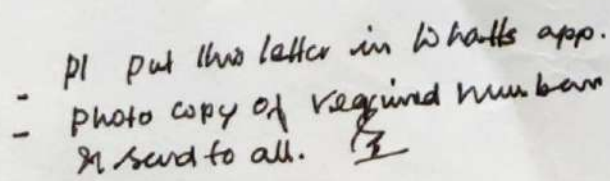 - pl put this letter in Whatts app.
- photo copy of required numbers
& send to all.